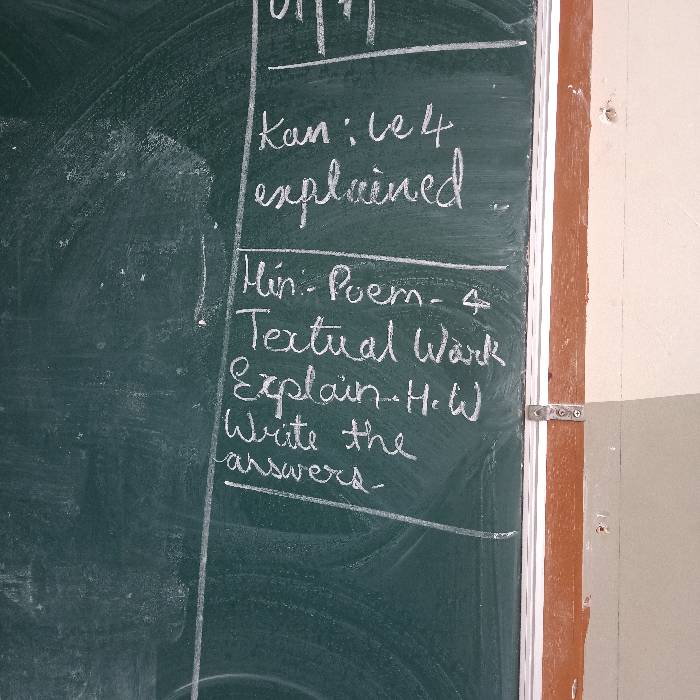 Kan : Le 4
explained
Hin:- Poem - 4
Textual Work
Explain - H.W
Write the
answers-